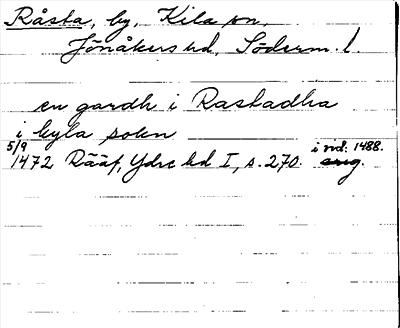 Råsta, by, Kila sn,
Jönåkers hd, Söderm. l
en gardh i Rastadha
i kyla sokn
5/9 1472 Rääf, Ydre hd I, s. 270. i vid. 1488.